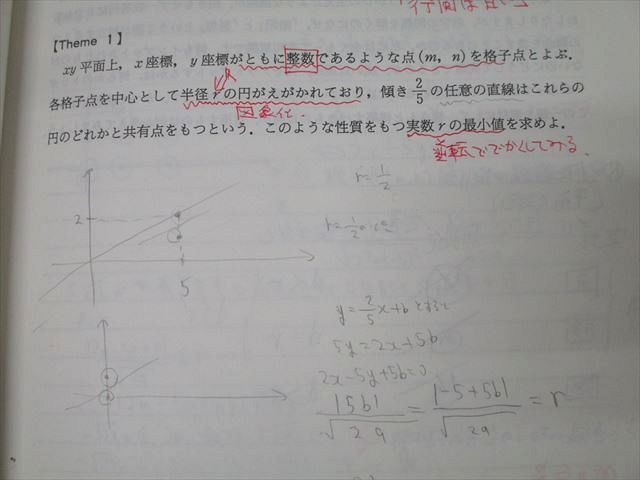 行間は
【Theme 1】
xy平面上，x座標，y座標がともに整数であるような点(m, n)を格子点とよぶ．
各格子点を中心として半径 r の円がえがかれており，傾き 2/5 の任意の直線はこれらの
図象化．
円のどれかと共有点をもつという．このような性質をもつ実数 r の最小値を求めよ．
逆転ででかくしてみる．
r=1/2
2
5
y=2/5x+b とすると
5y=2x+5b
2x-5y+5b=0
|5b|/√29 = |-5+5b|/√29 = r